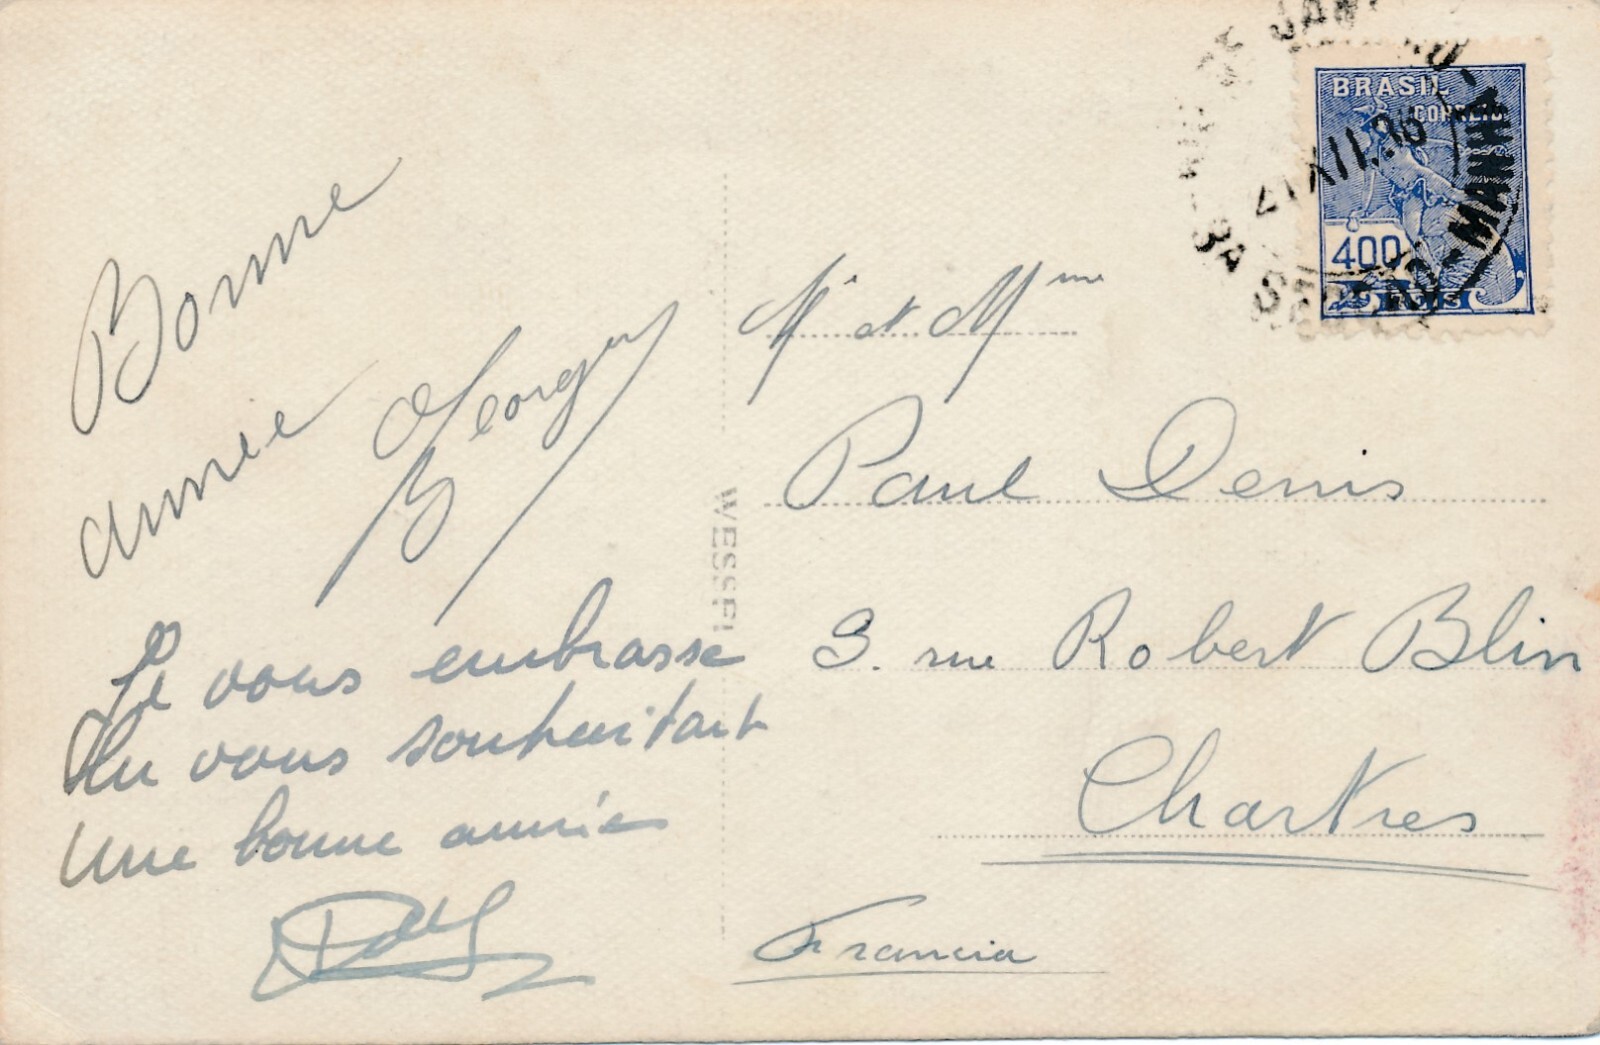 Bonne
année
Georges
Je vous embrasse
en vous souhaitant
une bonne année
WESSEL
Mr et Mme
Paul Denis
3. rue Robert Blin
Chartres
Francia
BRASIL
CORREIO
400
REIS
XII.36
MANHÃ